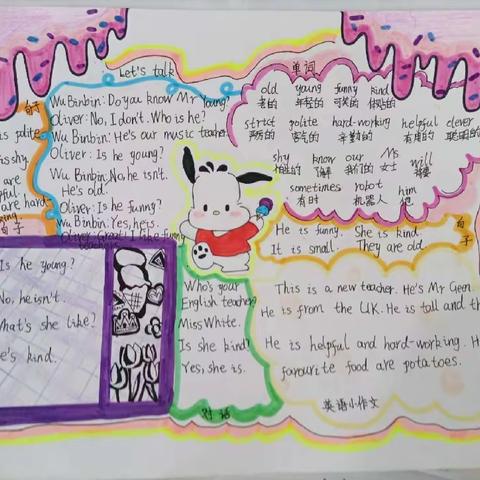 Let's talk
Wu Binbin: Do you know Mr Young?
Oliver: No, I don't. Who is he?
Wu Binbin: He's our music teacher.
Oliver: Is he young?
Wu Binbin: No, he isn't.
He's old.
Oliver: Is he funny?
Wu Binbin: Yes, he is.
Oliver: Great! I like funny
单词
old young funny kind
老的 年轻的 可笑的 体贴的
strict polite hard-working helpful clever
严厉的 客气的 辛勤的 有用的 聪明的
shy know our Ms will
了解 我们的 女士 将要
sometimes robot him
有时 机器人 他
句子
is polite
is shy
are
are hard-
句子
He is funny. She is kind.
It is small. They are old.
Is he young?
No, he isn't.
What's she like?
e's kind.
Who's your
English teacher
Miss White.
Is she kind?
Yes, she is.
对话
This is a new teacher. He's Mr Gen.
He is from the UK. He is tall and th
He is helpful and hard-working. H
favourite food are potatoes.
英语小作文